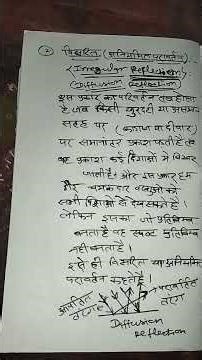 ② विसरित (अनियमित परावर्तन)
(Irregular Reflection)
(Diffusion Reflection)
इस प्रकार का परावर्तन तब होता
है जब किसी खुरदरी या असमान
सतह पर (कागज या दीवार)
पर समानांतर प्रकाश पड़ती है तब
वह प्रकाश कई दिशाओं में बिखर
जाती है। और इस प्रकार हम
गैर चमकदार वस्तुओं को
सभी दिशाओं से देख सकते हैं।
लेकिन इसका जो प्रतिबिम्ब
बनता है वह स्पष्ट प्रतिबिम्ब
नहीं बनता है।
इसे ही विसरित या अनियमित
परावर्तन कहते हैं।
आपतित परावर्तित
तरंग तरंग
Diffusion
Reflection